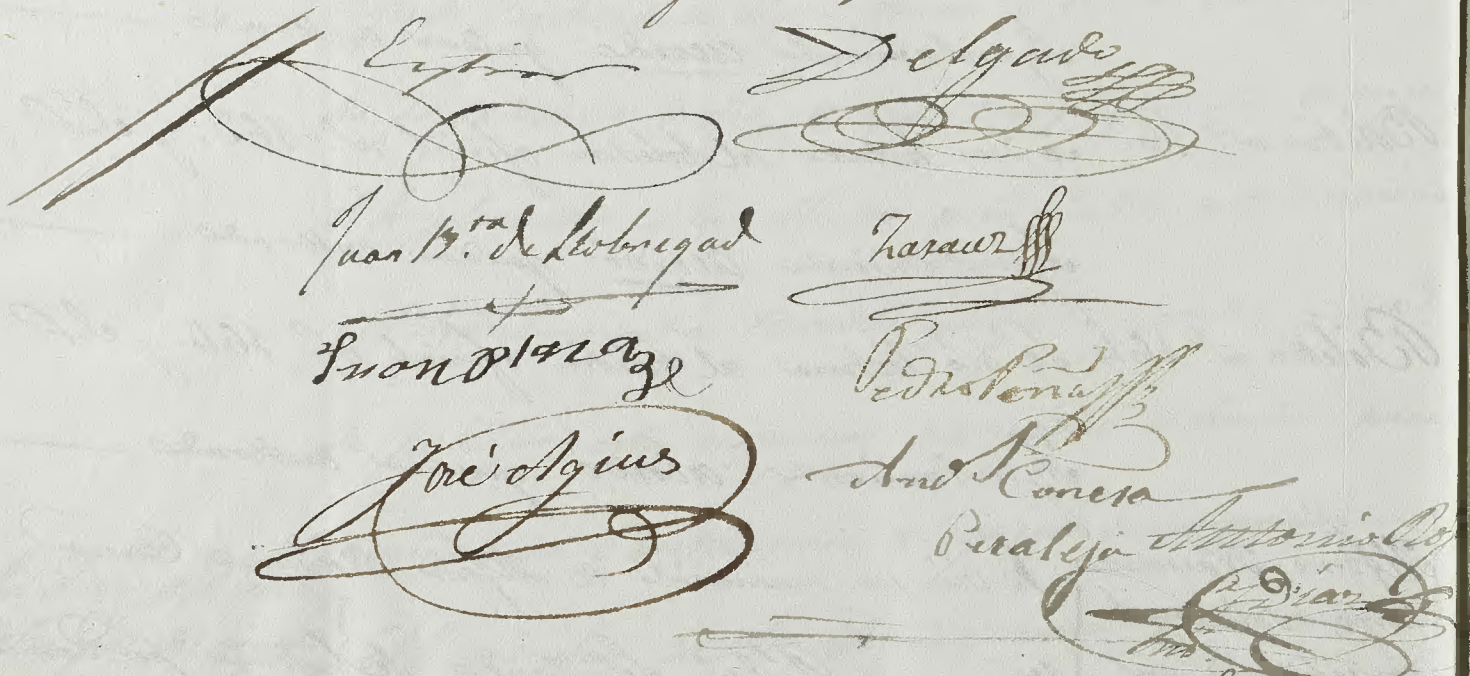 Delgado
Juan B.ta de Llobregad Zarauz
Juan Plaza
Pedro Peña
José Agius
And.s Conesa
Peraleja Antonio
Diaz